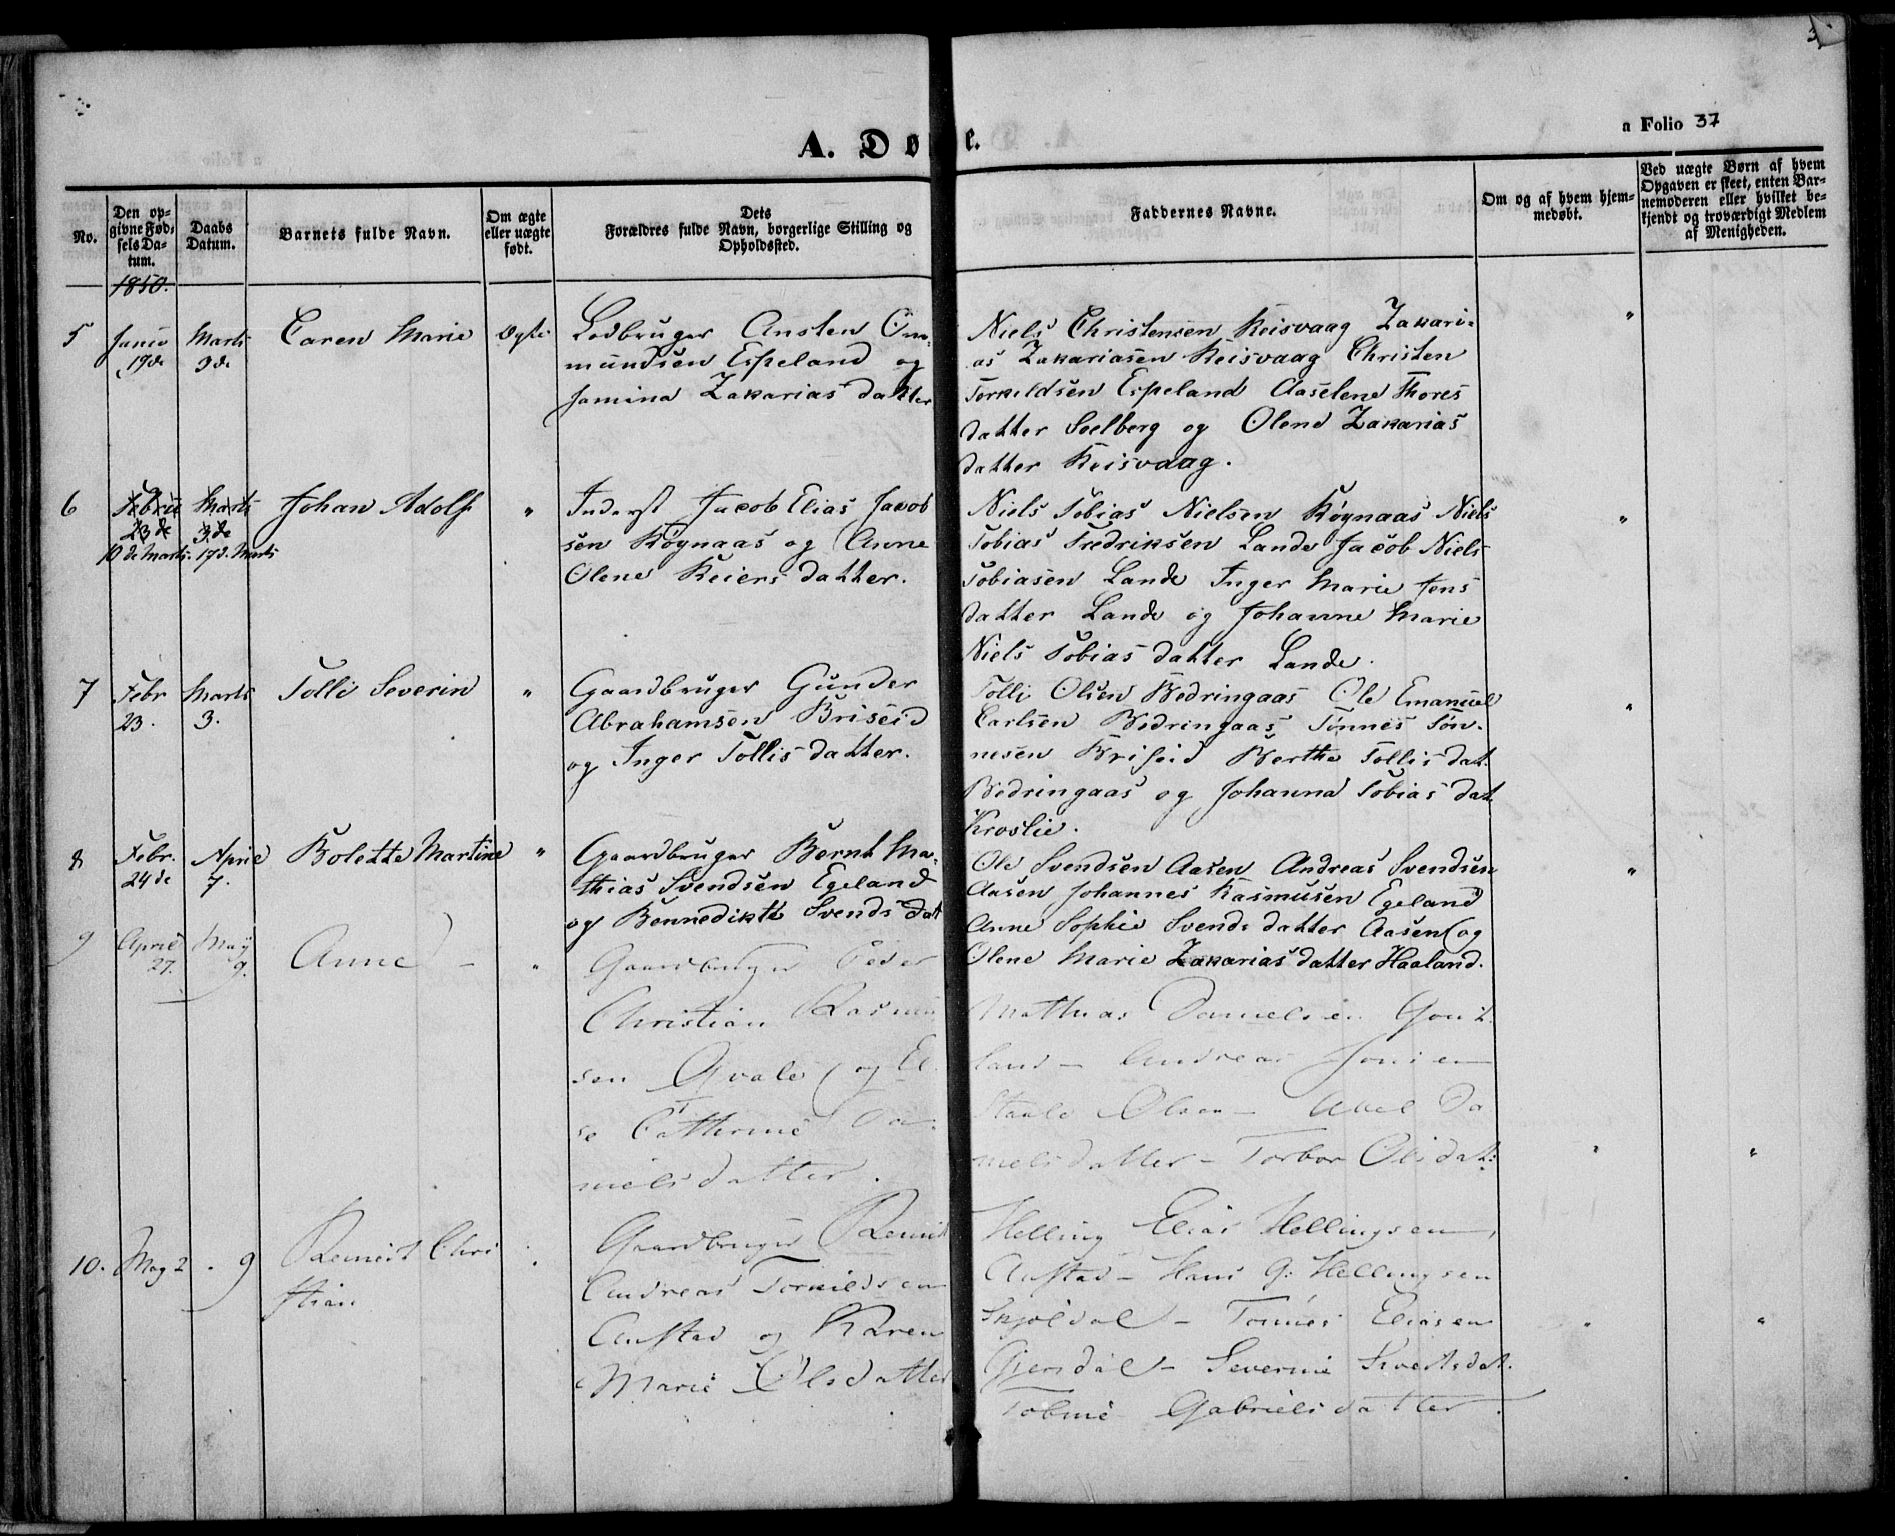 A. Dø e.
a Folio 37
No.
Den op-
givne Fød-
sels Da-
tum.
Daabs
Datum.
Barnets fulde Navn.
Om ægte
eller uægte
født.
Dets
Forældres fulde Navn, borgerlige Stilling og
Opholdssted.
Faddernes Navne.
Om og af hvem hjem-
medøbt.
Ved uægte Børn af hvem
Opgaven er skeet, enten Bar-
nemoderen eller hvilket be-
kjendt og troværdigt Medlem
af Menigheden.
1850.
5
19de
Marts
3de
Caren Marie
Ægte
Ledbruger Ansten Om-
mundsen Espeland og
Jamina Zakarias datter
Niels Christensen Reisvaag Zakari-
as Zakariasen Reisvaag Christen
Torkildsen Espeland Aaselene Thores
datter Seelberg og Olene Zakarias
datter Reisvaag.
"
6
23de
10de Marts.
Marts
3de
17d. Marts
Johan Adolf
"
Inderst Jacob Elias Jacob
sen Røynaas og Anne
Olene Reiers datter.
Niels Tobias Nielsen Røynaas Niels
Tobias Fredriksen Lande Jacob Niels
Tobiasen Lande Inger Marie Jens
datter Lande og Johanne Marie
Niels Tobias datter Lande.
"
7
Febr
23.
Marts
3.
Tolli Severin
"
Gaardbruger Gunder
Abrahamsen Briseid
og Inger Tollis datter.
Tolli Olsen Bedringaas Ole Emanuel
Carlsen Bedringaas Tønnes Tøn-
nesen Briseid Berthe Tollis dat.
Bedringaas og Johanna Tobias dat.
Kroslie.
"
8
Febr.
24de
April
7.
Bolette Martine
"
Gaardbruger Bernt Ma-
thias Svendsen Egeland
og Bennedikte Svends datt
Ole Svendsen Aasen Andreas Svendsen
Aasen Johannes Rasmusen Egeland
Anne Sophie Svends datter Aasen og
Olene Marie Zakarias datter Haaland.
"
9
April
27.
May
9.
Anne
"
Gaardbruger Peder
Christian Rasmu
sen Qvale og El-
se Cathrine Da-
nielsdatter.
Mathias Danielsen
land - Andreas Jonsen
Olsen - Abel Da
nielsdatter - Torbor Olsdat:
"
"
10.
May 2
" 9
Reinert Chri
stian
"
Gaardbruger Reinert
Andreas Torkildsen
Austad og Karen
Marie Olsdatter
Helling Elias Hellingsen,
Austad - Hans G. Hellingsen
Skjoldal - Tønnes Eliasen
Gjersdal - Severine Sivertsdat.
Tobine Gabrielsdatter.
"
"